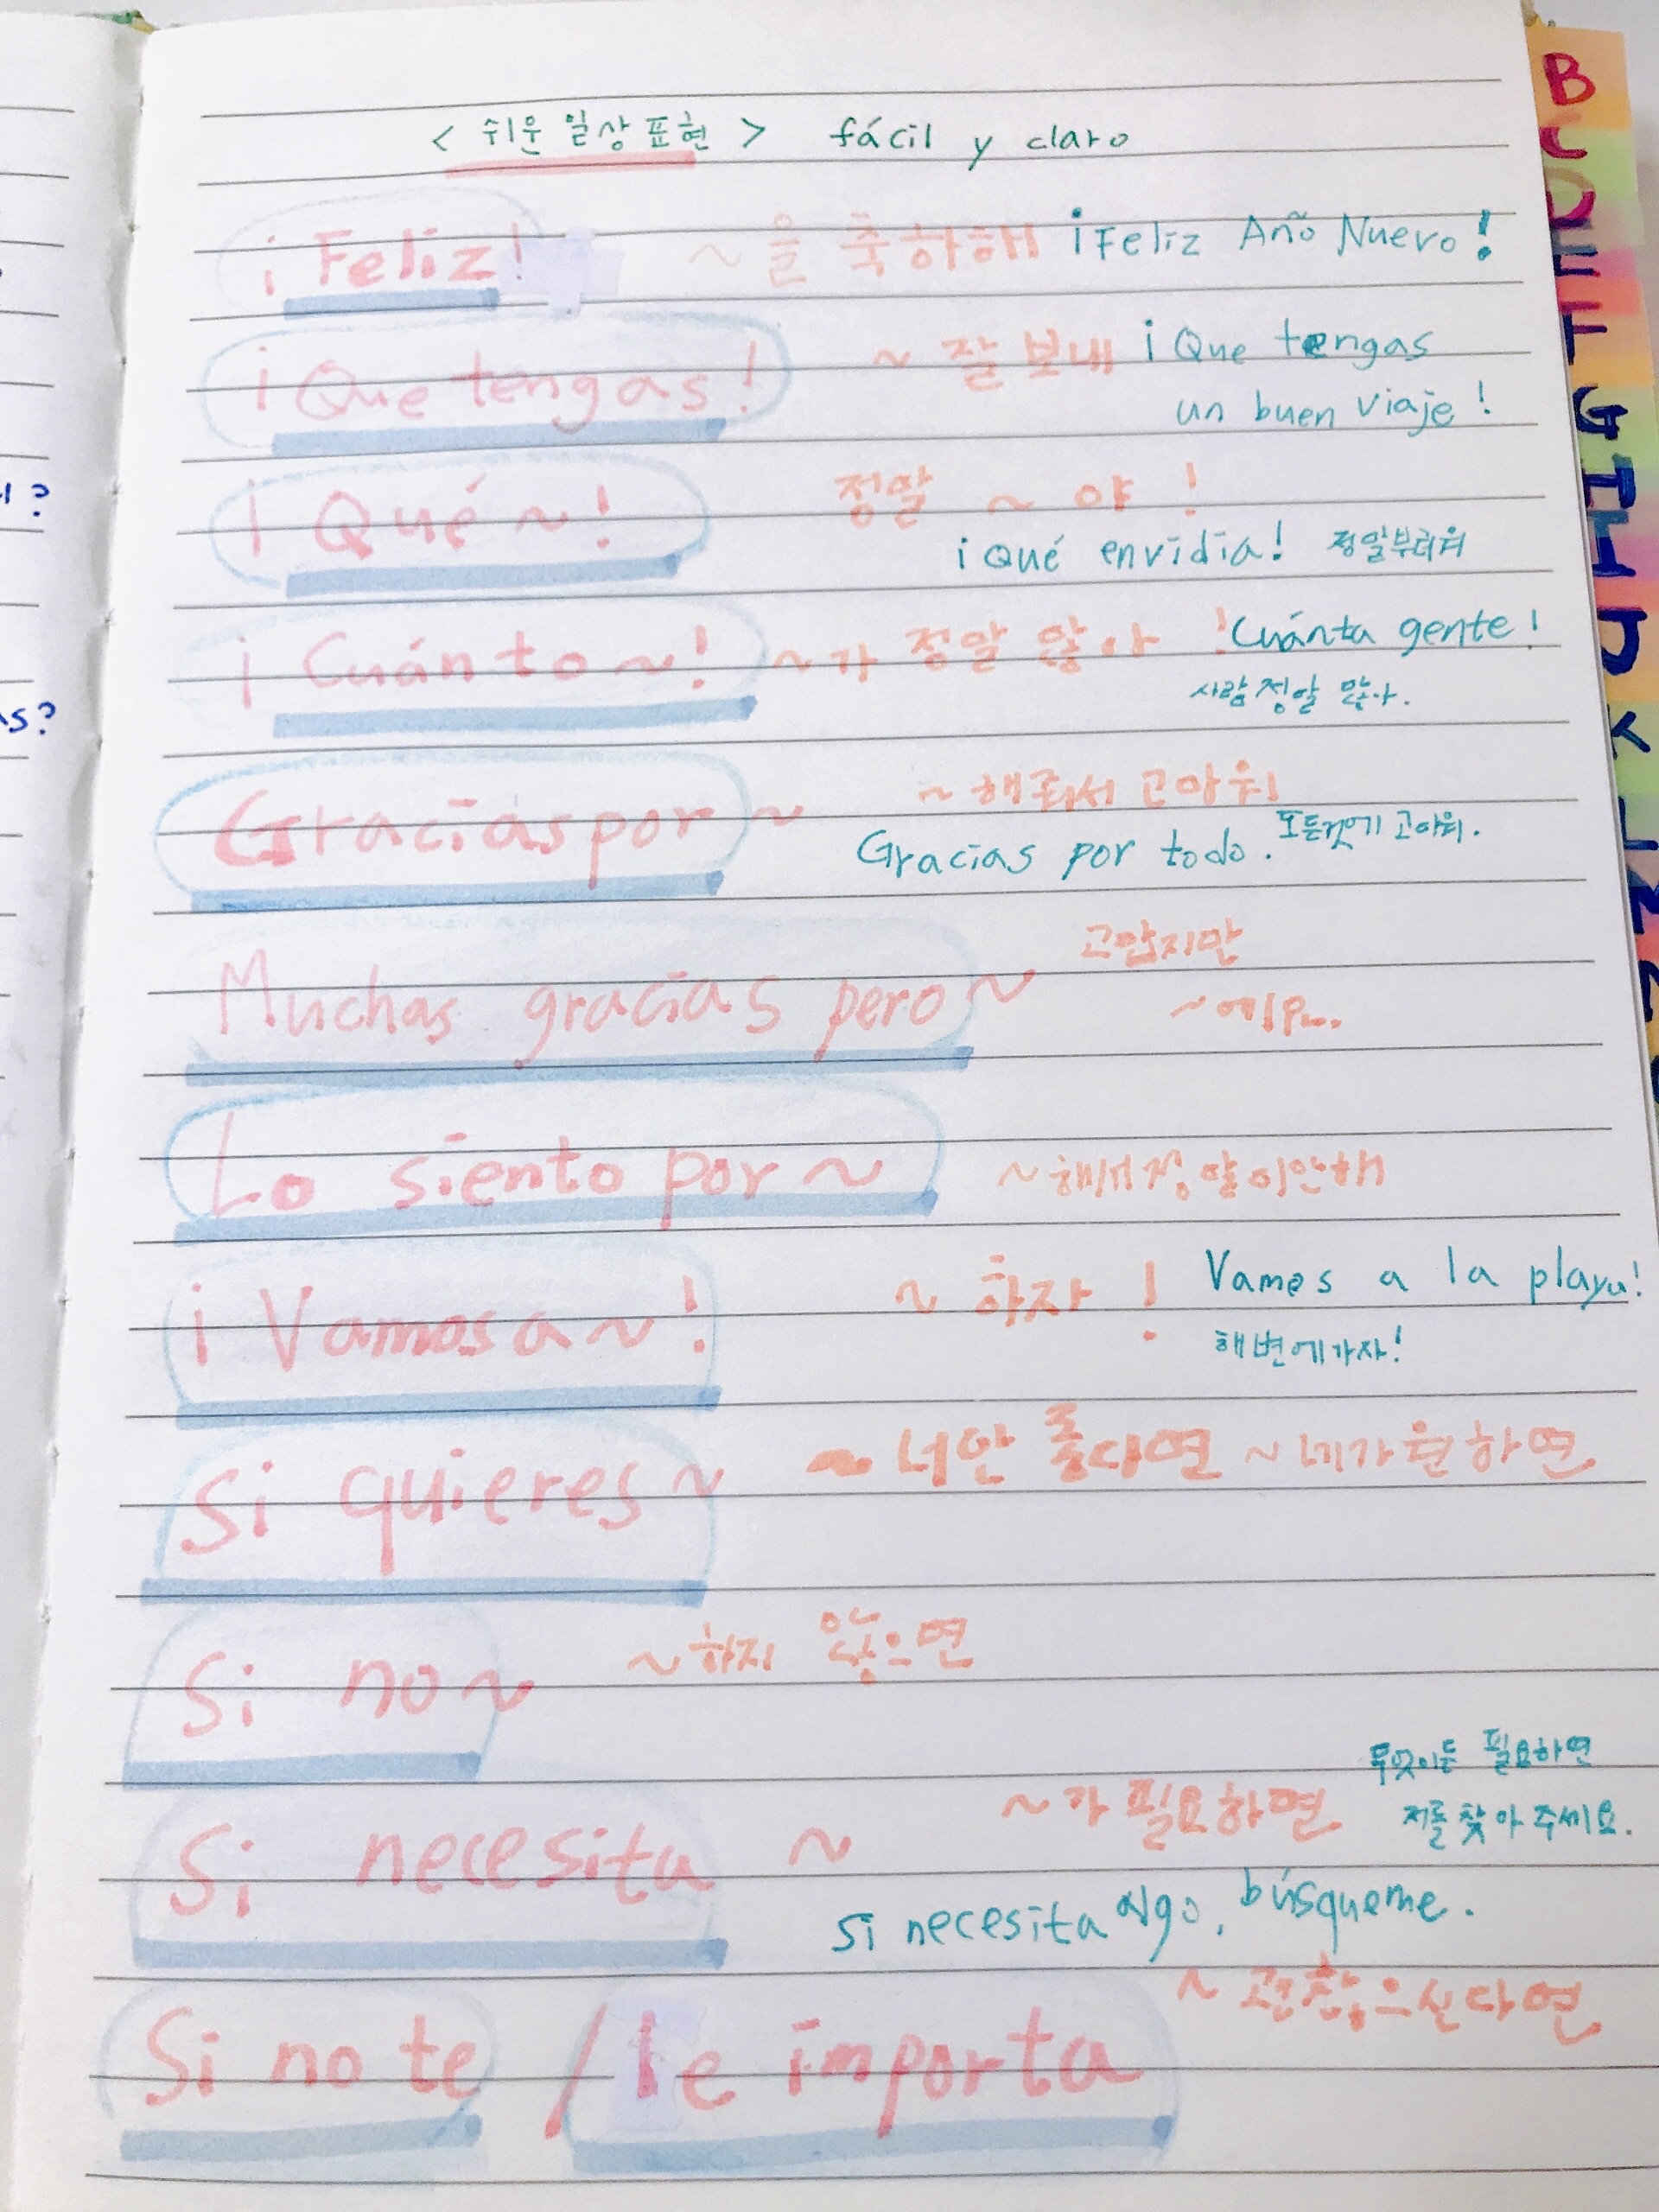 < 쉬운 일상 표현 > fácil y claro
¡Feliz! ~을 축하해 ¡Feliz Año Nuevo!
¡Que tengas! ~ 잘 보내 ¡Que tengas
un buen viaje!
¡Qué ~! 정말 ~ 야!
¡Qué envidia! 정말부러워
¡Cuánto ~! ~가 정말 많아 !Cuánta gente!
사람정말 많아.
Gracias por ~ ~해줘서 고마워
Gracias por todo. 모든것에 고마워.
Muchas gracias pero ~ 고맙지만
~에요.
Lo siento por ~ ~해서정말미안해
¡Vamos a ~! ~ 하자! Vamos a la playa!
해변에가자!
Si quieres ~ ~ 너만 좋다면 ~네가원하면
Si no ~ ~하지 않으면
무엇이든 필요하면
Si necesita ~ ~가 필요하면 저를 찾아 주세요.
Si necesita algo, búsqueme.
~ 괜찮으신다면
Si no te / le importa
B
C
D
E
F
G
H
I
J
K
L
?
as?